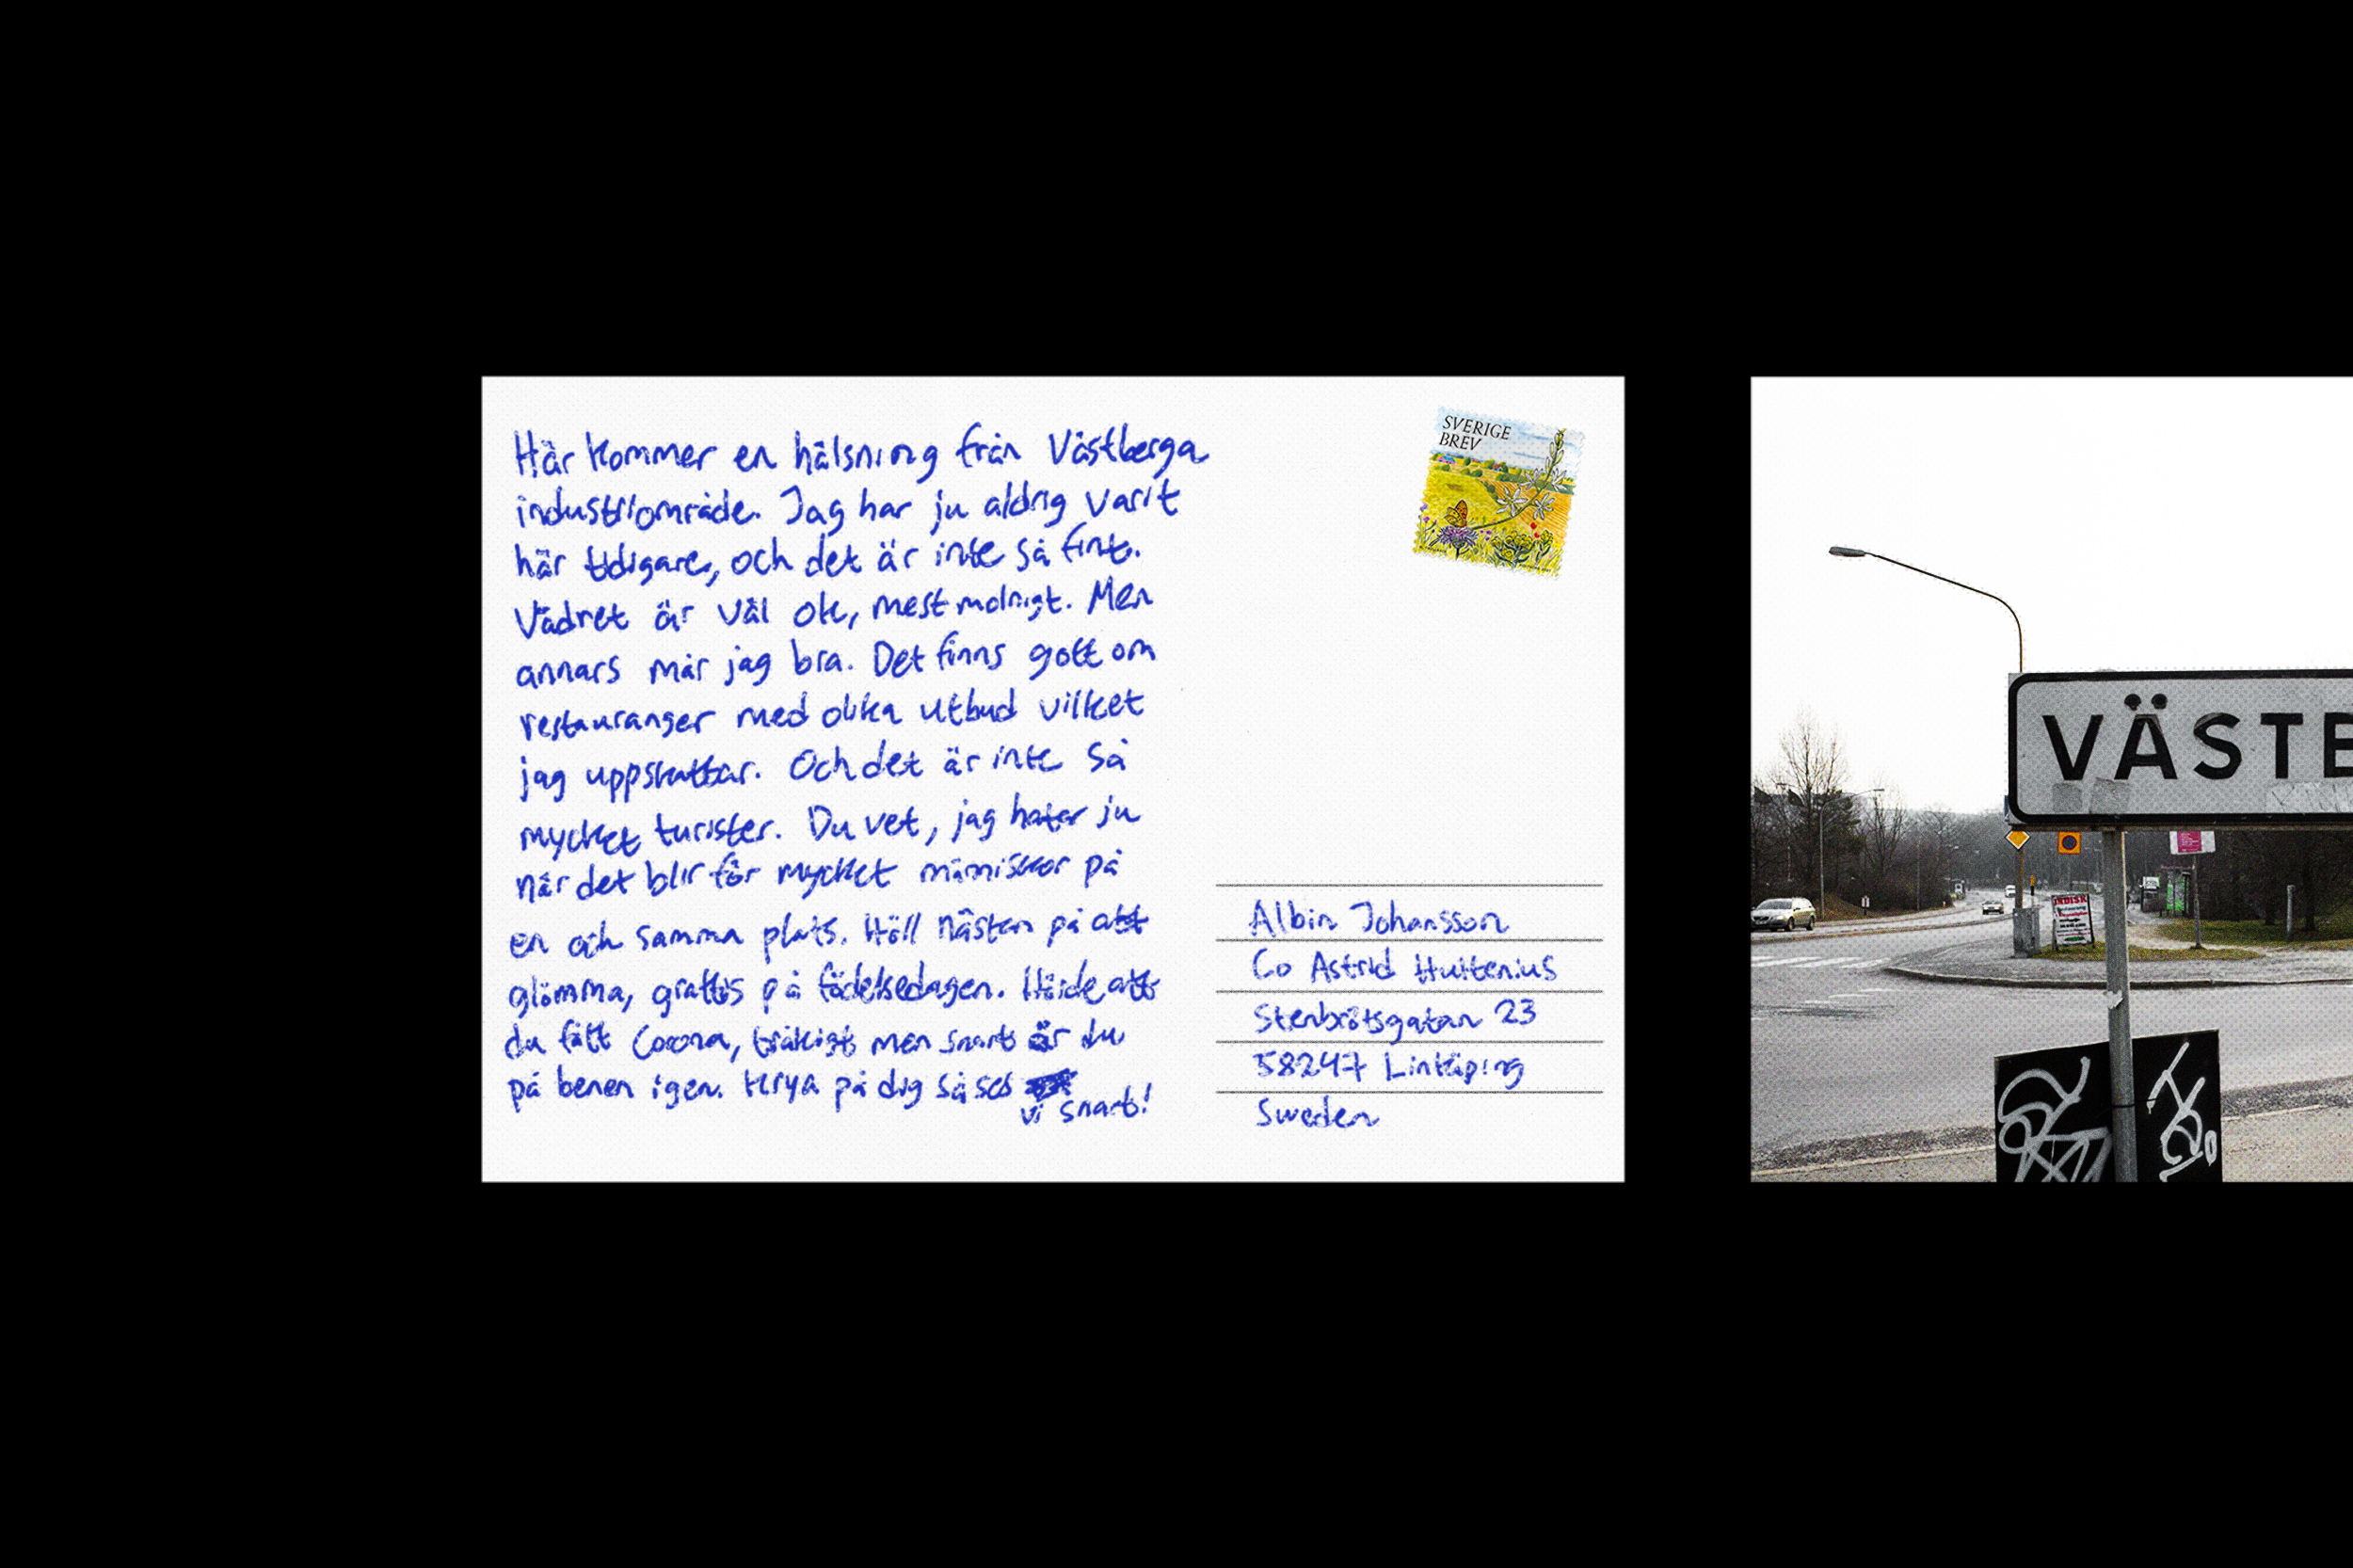 Här kommer en hälsning från Västberga
industriområde. Jag har ju aldrig varit
här tidigare, och det är inte så fint.
Vädret är väl ok, mest molnigt. Men
annars mår jag bra. Det finns gott om
restauranger med olika utbud vilket
jag uppskattar. Och det är inte så
mycket turister. Du vet, jag hatar ju
när det blir för mycket människor på
en och samma plats. Höll nästan på att
glömma, grattis på födelsedagen. Hörde att
du fått Corona, tråkigt men snart är du
på benen igen. Krya på dig så ses
vi snart!
SVERIGE
BREV
Albin Johansson
Co Astrid Hultenius
Stenbrötsgatan 23
58247 Linköping
Sweden
VÄSTB
INDISK